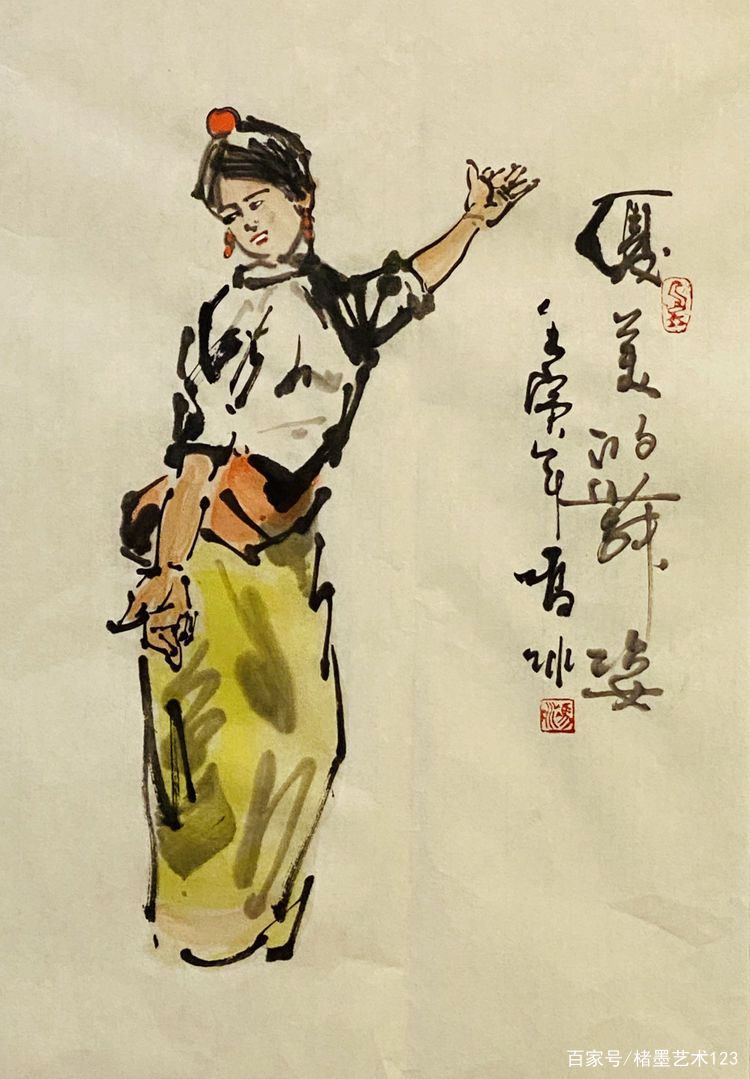 優美的舞姿
壬寅年
百家号/楮墨艺术123